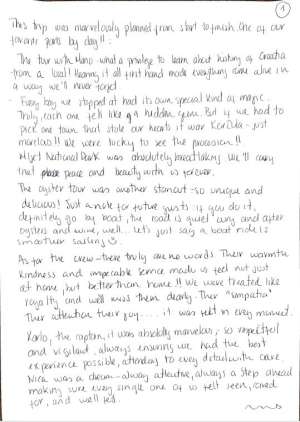 1
This trip was marvelously planned from start to finish. One of our
favorite parts by day!!:
The tour with Mano what a privilege to learn about history of Croatia
from a local! Hearing it all first hand made everything come alive in
a way we'll never forget.
Every bay we stopped at had its own special kind of magic.
Truly, each one felt like a hidden gem. But if we had to
pick one town that stole our hearts it was Korčula - just
marvelous!! We were lucky to see the procession!!
Mljet National Park was absolutely breathtaking. We'll carry
that peace and beauty with us forever.
The oyster tour was another standout - so unique and
delicious! Just a note for future guests: if you do it,
definitely go by boat, the road is quiet curvy and after
oysters and wine, well... Let's just say a boat ride is
smoother sailing
As for the crew - there truly are no words. Their warmth
kindness and impeccable service made us feel not just
at home, but better than home!! We were treated like
royalty and will miss them dearly. Their "simpatia"
Their attention their joy.... it was felt in every moment.
Karlo, the captain, it was absolutely marvelous, so respectful
and vigilant, always ensuring we had the best
experience possible, attending to every detail with care.
Nica was a dream - always attentive, always a step ahead
making sure every single one of us felt seen, cared
for, and well fed.